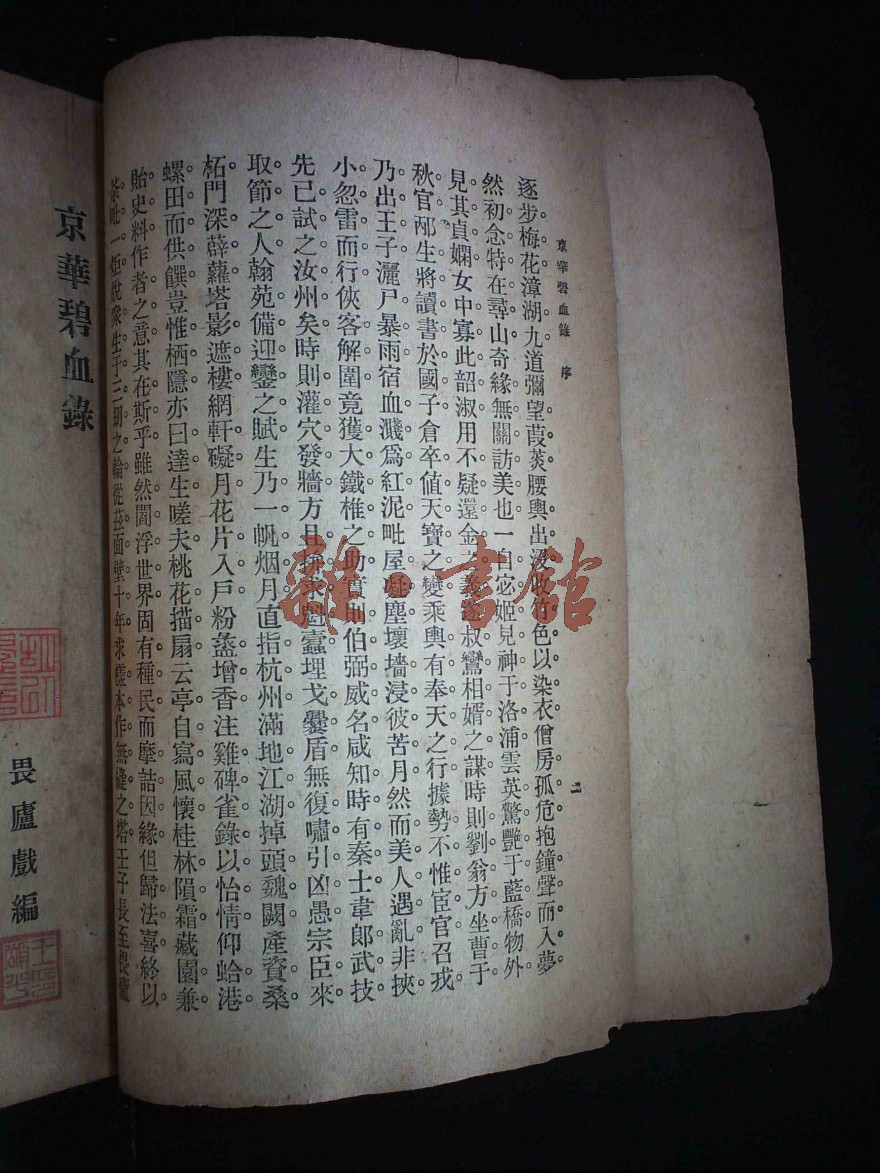 京華碧血錄 序
二
逐步梅花漳湖九道彌望葭菼腰輿出沒收竹色以染衣僧房孤危抱鐘聲而入夢
然初念特在尋山奇緣無關訪美也一自宓姬見神于洛浦雲英驚艷于藍橋物外
見其貞嫻女中寡此韶淑用不疑還金之義遂叔鸞相婿之謀時則劉翁方坐曹于
秋官邴生將讀書於國子倉卒值天寶之變乘輿有奉天之行據勢不惟宦官召戎
乃出王子灑尸暴雨宿血濺為紅泥毗屋凝塵壞墻浸彼苦月然而美人遇亂非挾
小忽雷而行俠客解圍竟獲大鐵椎之助實則伯弼威名咸知時有秦士韋郎武技
先已試之汝州矣時則灌穴發牆方且搦求魁蠹埋戈爨盾無復嘯引凶愚宗臣來
取節之人翰苑備迎鑾之賦生乃一帆烟月直指杭州滿地江湖掉頭魏闕產資桑
柘門深薜蘿塔影遮樓網軒礙月花片入戶粉盝增香注雞碑雀錄以怡情仰蛤港
螺田而供饌豈惟栖隱亦曰達生嗟夫桃花描扇云亭自寫風懷桂林隕霜藏園兼
貽史料作者之意其在斯乎雖然閻浮世界固有種民而摩詰因緣但歸法喜終以
荼毗一炬脫衆生于三刧之輪從茲面壁十年求樣本作無縫之塔壬子長至畏廬
京華碧血錄
畏廬戲編
雜·書館